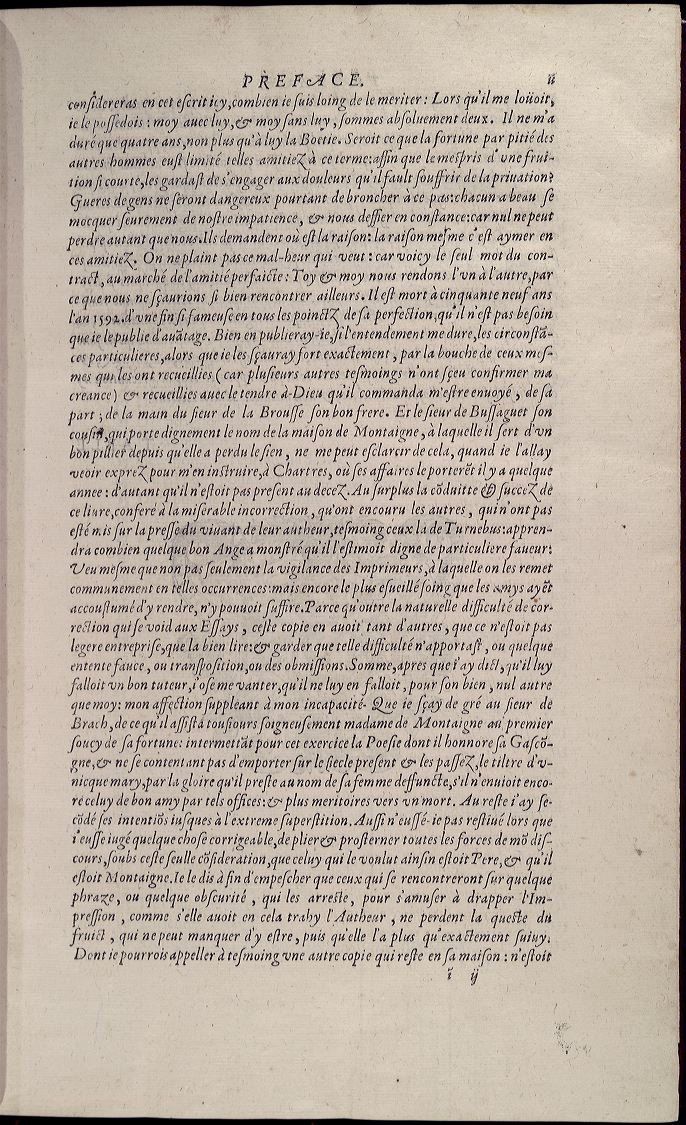 PREFACE. ii
considereras en cet escrit icy, combien ie suis loing de le meriter: Lors qu'il me loüoit,
ie le possedois: moy auec luy, & moy sans luy, sommes absoluement deux. Il ne m'a
duré que quatre ans, non plus qu'à luy la Boëtie. Seroit ce que la fortune par pitié des
autres hommes eust limité telles amitiez à ce terme: affin que le mespris d'vne frui-
tion si courte, les gardast de s'engager aux douleurs qu'il fault souffrir de la priuation?
Gueres de gens ne seront dangereux pourtant de broncher à ce pas: chacun a beau se
mocquer seurement de nostre impatience, & nous deffier en constance: car nul ne peut
perdre autant que nous. Ils demandent où est la raison: la raison mesme c'est aymer en
ces amitiez. On ne plaint pas ce mal-heur qui veut: car voicy le seul mot du con-
tract, au marché de l'amitié perfaicte: Toy & moy nous rendons l'vn à l'autre, par
ce que nous ne sçaurions si bien rencontrer ailleurs. Il est mort à cinquante neuf ans
l'an 1592. d'vne fin si fameuse en tous les poinctz de sa perfection, qu'il n'est pas besoin
que ie le publie d'auātage. Bien en publieray-ie, si l'entendement me dure, les circonstā-
ces particulieres, alors que ie les sçauray fort exactement, par la bouche de ceux mes-
mes qui les ont recueillies (car plusieurs autres tesmoings n'ont sçeu confirmer ma
creance) & recueillies auec le tendre à-Dieu qu'il commanda m'estre enuoyé, de sa
part; de la main du sieur de la Brousse son bon frere. Et le sieur de Bussaguet son
cousin, qui porte dignement le nom de la maison de Montaigne, à laquelle il sert d'vn
bon pillier depuis qu'elle a perdu le sien, ne me peut esclarcir de cela, quand ie l'allay
veoir exprez pour m'en instruire, à Chartres, où ses affaires le porterēt il y a quelque
annee: d'autant qu'il n'estoit pas present au decez. Au surplus la cōduitte & succez de
ce liure, conferé à la miserable incorrection, qu'ont encouru les autres, qui n'ont pas
esté mis sur la presse du viuant de leur autheur, tesmoing ceux là de Turnebus: appren-
dra combien quelque bon Ange a monstré qu'il l'estimoit digne de particuliere faueur:
Veu mesme que non pas seulement la vigilance des Imprimeurs, à laquelle on les remet
communement en telles occurrences: mais encore le plus esueillé soing que les amys ayēt
accoustumé d'y rendre, n'y pouuoit suffire. Parce qu'outre la naturelle difficulté de cor-
rection qui se void aux Essays, ceste copie en auoit tant d'autres, que ce n'estoit pas
legere entreprise, que la bien lire: & garder que telle difficulté n'apportast, ou quelque
entente fauce, ou transposition, ou des obmissions. Somme, apres que i'ay dict, qu'il luy
falloit vn bon tuteur, i'ose me vanter, qu'il ne luy en falloit, pour son bien, nul autre
que moy: mon affection suppleant à mon incapacité. Que ie sçay de gré au sieur de
Brach, de ce qu'il assista tousiours soigneusement madame de Montaigne au premier
soucy de sa fortune: intermettāt pour cet exercice la Poesie dont il honnore sa Gascō-
gne, & ne se contentant pas d'emporter sur le siecle present & les passez, le tiltre d'v-
nicque mary, par la gloire qu'il preste au nom de sa femme deffuncte, s'il n'enuioit enco-
re celuy de bon amy par tels offices: & plus meritoires vers vn mort. Au reste i'ay se-
cōdé ses intentiōs iusques à l'extreme superstition. Aussi n'eussé-ie pas restiué lors que
i'eusse iugé quelque chose corrigeable, de plier & prosterner toutes les forces de mō dis-
cours, soubs ceste seulle cōsideration, que celuy qui le voulut ainsin estoit Pere, & qu'il
estoit Montaigne. Ie le dis à fin d'empescher que ceux qui se rencontreront sur quelque
phraze, ou quelque obscurité, qui les arreste, pour s'amuser à drapper l'Im-
pression, comme s'elle auoit en cela trahy l'Autheur, ne perdent la queste du
fruict, qui ne peut manquer d'y estre, puis qu'elle l'a plus qu'exactement suiuy.
Dont ie pourrois appeller à tesmoing vne autre copie qui reste en sa maison: n'estoit
ĩ ij